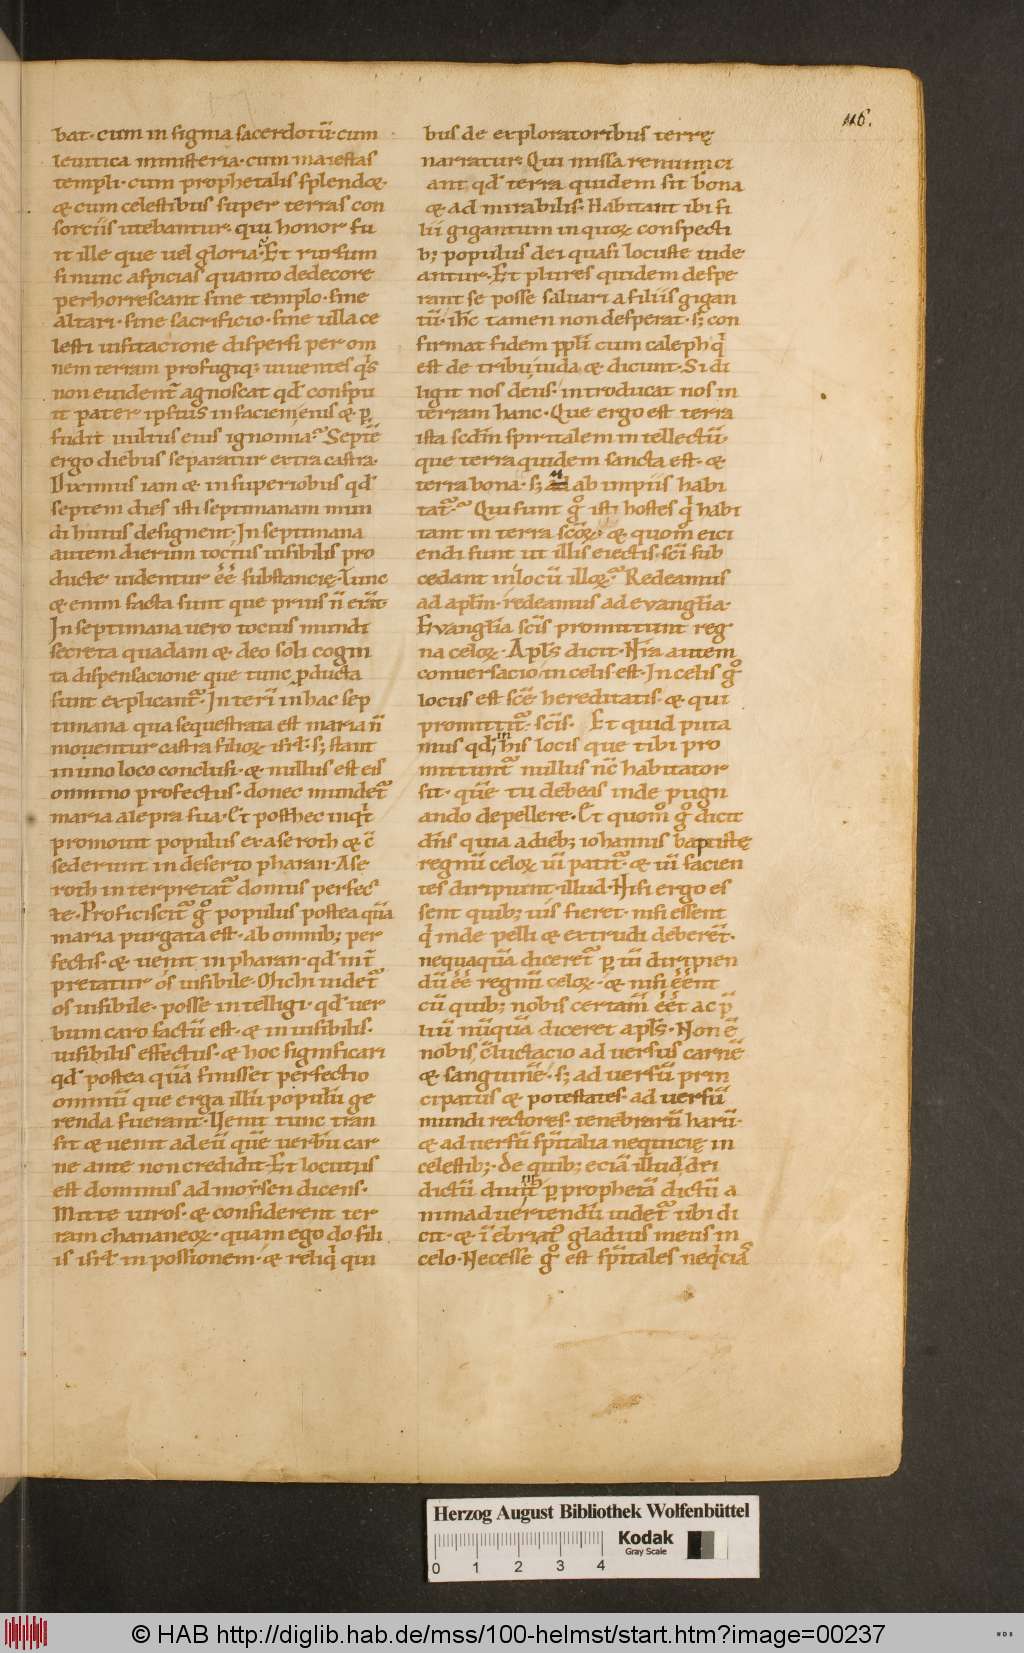 116.
bat· cum insignia sacerdotū· cum
levitica ministeria· cum maiestas
templi· cum prophetalis splendor·
& cum celestibus super terras con
sorciis utebantur· qui honor fu
it ille que vel gloria· Et rursum
si nunc aspicias quanto dedecore
perhorrescant sine templo· sine
altari· sine sacrificio· sine ulla ce
lesti visitacione dispersi per om
nem terram profugiq; viventes q's
non evident̄ agnoscat qd' conspu
it pater ipsius in faciem eius & p̱
fudit vultus eius ignominia· Septē
ergo diebus separatur extra castra·
Diximus iam & in superiobus qd'
septem dies isti septimanam mun
di huius designent· In septimana
autem dierum tocius visibilis pro
ducte videntur ēē substancię· Tunc
& enim facta sunt que prius n̄ erāt·
In septimana vero tocius mundi
secreta quadam & deo soli cogni
ta dispensacione que tunc p̱ducta
sunt explicant̄· Interī in hac sep
timana qua sequestrata est maria n̄
moventur castra filioꝝ isrł· s; stant
in uno loco conclusi· & nullus est eis
omnino profectus· donec mundet̄
maria a lepra sua· Et posthec inq't
promovit populus ex aseroth & c̄
sederunt in deserto pharan· Ase
roth interpretat̄ domus perfec
te· Proficiscit̄ gͦ populus postea quā
maria purgata est· ab omnib; per
fectis· & venit in pharan· qd' int̄
pretatur os visibile· Michi videt̄
os visibile· posse intelligi· qd' ver
bum caro factū est· & invisibilis·
visibilis effectus· & hoc significari
qd' postea quā finisset perfectio
omniū que erga illū populū ge
renda fuerant· Venit tunc tran
sit & venit ad eū quē verbū car
ne ante non credidit· Et locutus
est dominus ad moysen dicens·
Mitte viros· & considerent ter
ram chananeoꝝ· quam ego do fili
is isrł in possionem· & reliq' qui
bus de exploratoribus terrę
nariatur· Qui missa renunnci
ant qd' terra quidem sit bona
& admirabilis· Habitant ibi fi
lii gigantum in quoꝝ conspecti
b; populus dei quasi locuste vide
antur· Et plures quidem despe
rant se posse salvari a filiis gigan
tū· ihc̄ tamen non desperat· s; con
firmat fidem ppłi cum caleph q'
est de tribu iuda & dicunt· Si di
ligit nos deus· introducat nos in
terram hanc· Que ergo est terra
ista scdm̄ spiritalem intellectū·
que terra quidem sancta est· &
terra bona· s; ab impiis habi
tat̄· Qui sunt gͦ isti hostes q' habi
tant in terra scōꝝ· & quom̄ eici
endi sunt ut illis eiectis· sc̄i sub
cedant in locū illoꝝ· Redeamus
ad aplm̄· redeamus ad evanglia·
Evanglia sc̄is promittunt reg
na celoꝝ· Apłs dicit· Nr̄a autem
conversacio in celis est· In celis gͦ
locus est sc̄e hereditatis· & qui
promittit̄· sc̄is· Et quid puta
mus qd' in his locis que tibi pro
mittunt̄ nullus nc̄ habitator
sit· quē tu debeas inde pugn
ando depellere· Et quom̄ gͦ dicit
dn̄s quia a dieb; iohannis baptiste
regnū celoꝝ vī patit̄· & vī facien
tes diripiunt· illud· Nisi ergo es
sent quib; vis fieret· nisi essent
q' inde pelli & extrudi deberēt·
nequaquā diceret̄ p̱ vī diripien
dū ēē regnū celoꝝ· & nisi ēēnt
cū quib; nobis certam̄ ēēt ac p̄
liū nūquā diceret apłs· Non ē
nobis c̄luctacio adversus carnē
& sanguinē· s; adversū prin
cipatus & potestates· adversū
mundi rectores· tenebrarū harū·
& adversū sp̄italia nequicię in
celestib;· de quib; eciā illud dei
dictū p̱ prophetā dictū a
nimadvertendū videt̄ ubi di
cit· & īebriat; gladius meus in
celo· Necesse gͦ est sp̄itales neq'cia
Herzog August Bibliothek Wolfenbüttel
0 1 2 3 4
Kodak
Gray Scale
© HAB http://diglib.hab.de/mss/100-helmst/start.htm?image=00237